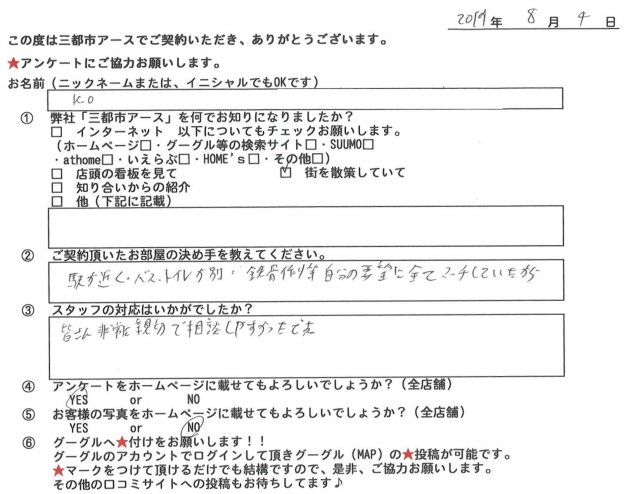 2019年 8月 4日
この度は三都市アースでご契約いただき、ありがとうございます。
★アンケートにご協力お願いします。
お名前(ニックネームまたは、イニシャルでもOKです)
KO
① 弊社「三都市アース」を何でお知りになりましたか?
□ インターネット 以下についてもチェックお願いします。
(ホームページ□・グーグル等の検索サイト□・SUUMO□
・athome□・いえらぶ□・HOME's□・その他□)
□ 店頭の看板を見て ☑ 街を散策していて
□ 知り合いからの紹介
□ 他(下記に記載)
② ご契約頂いたお部屋の決め手を教えてください。
駅が近く・バス、トイレが別・鉄骨作り等自分の要望に全てマッチしていたから
③ スタッフの対応はいかがでしたか?
皆さん非常に親切で相談しやすかったです
④ アンケートをホームページに載せてもよろしいでしょうか?(全店舗)
YES or NO
⑤ お客様の写真をホームページに載せてもよろしいでしょうか?(全店舗)
YES or NO
⑥ グーグルへ★付けをお願いします!!
グーグルのアカウントでログインして頂きグーグル(MAP)の★投稿が可能です。
★マークをつけて頂けるだけでも結構ですので、是非、ご協力お願いします。
その他の口コミサイトへの投稿もお待ちしてます♪